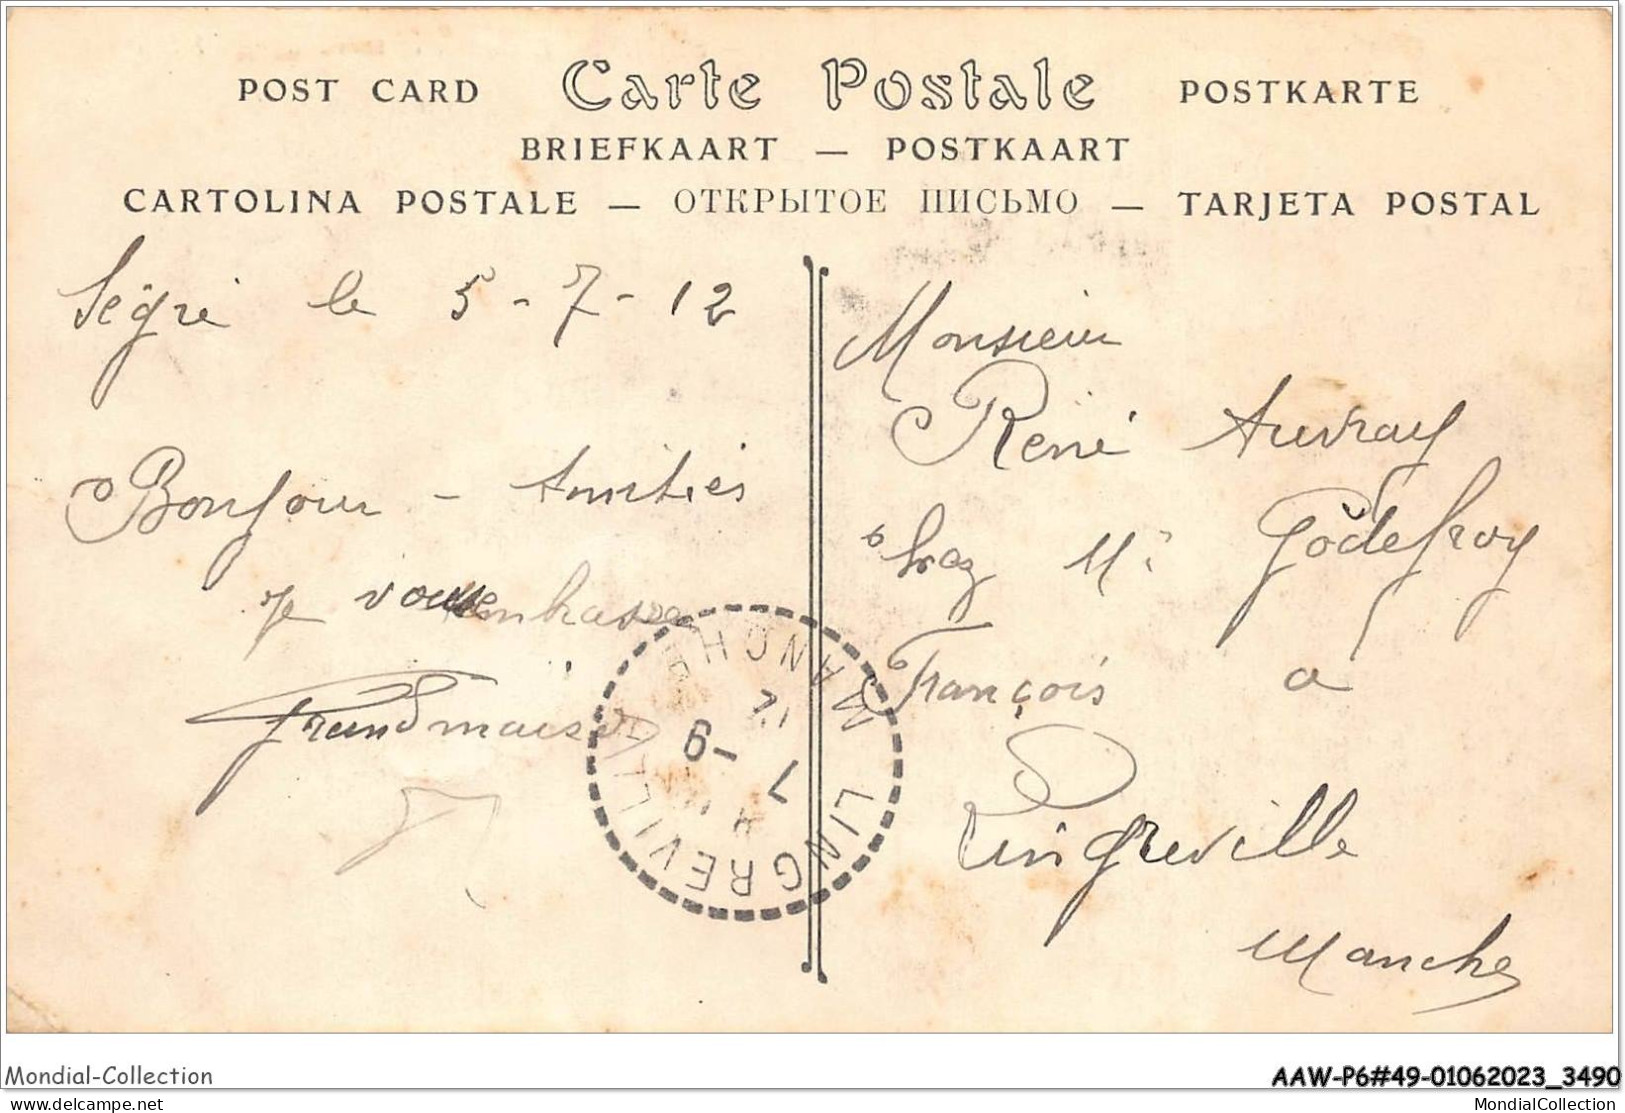 POST CARD Carte Postale POSTKARTE
BRIEFKAART — POSTKAART
CARTOLINA POSTALE — ОТКРЫТОЕ ПИСЬМО — TARJETA POSTAL
Segré le 5-7-12
Bonjour - Amitiés
je vous embrasse
Monsieur
René Auvray
chez Mr Godefroy
François à
Lingreville
Manche
MANCHE
12
7 -9
LINGREVILLE
Mondial-Collection
AAW-P6#49-01062023_3490
www.delcampe.net
MondialCollection